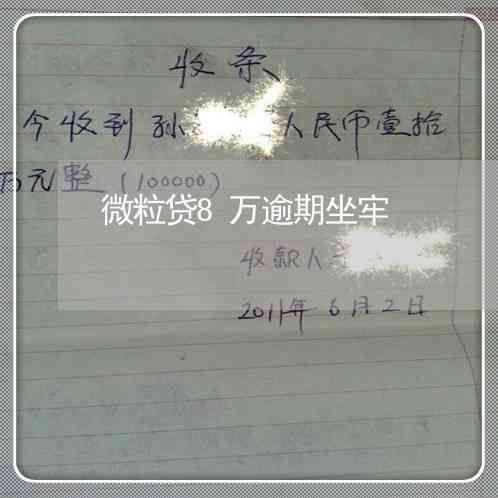 收条
今收到孙 人民币壹拾
万元整(100000)
微粒贷8 万逾期坐牢
收款人
2011年6月2日